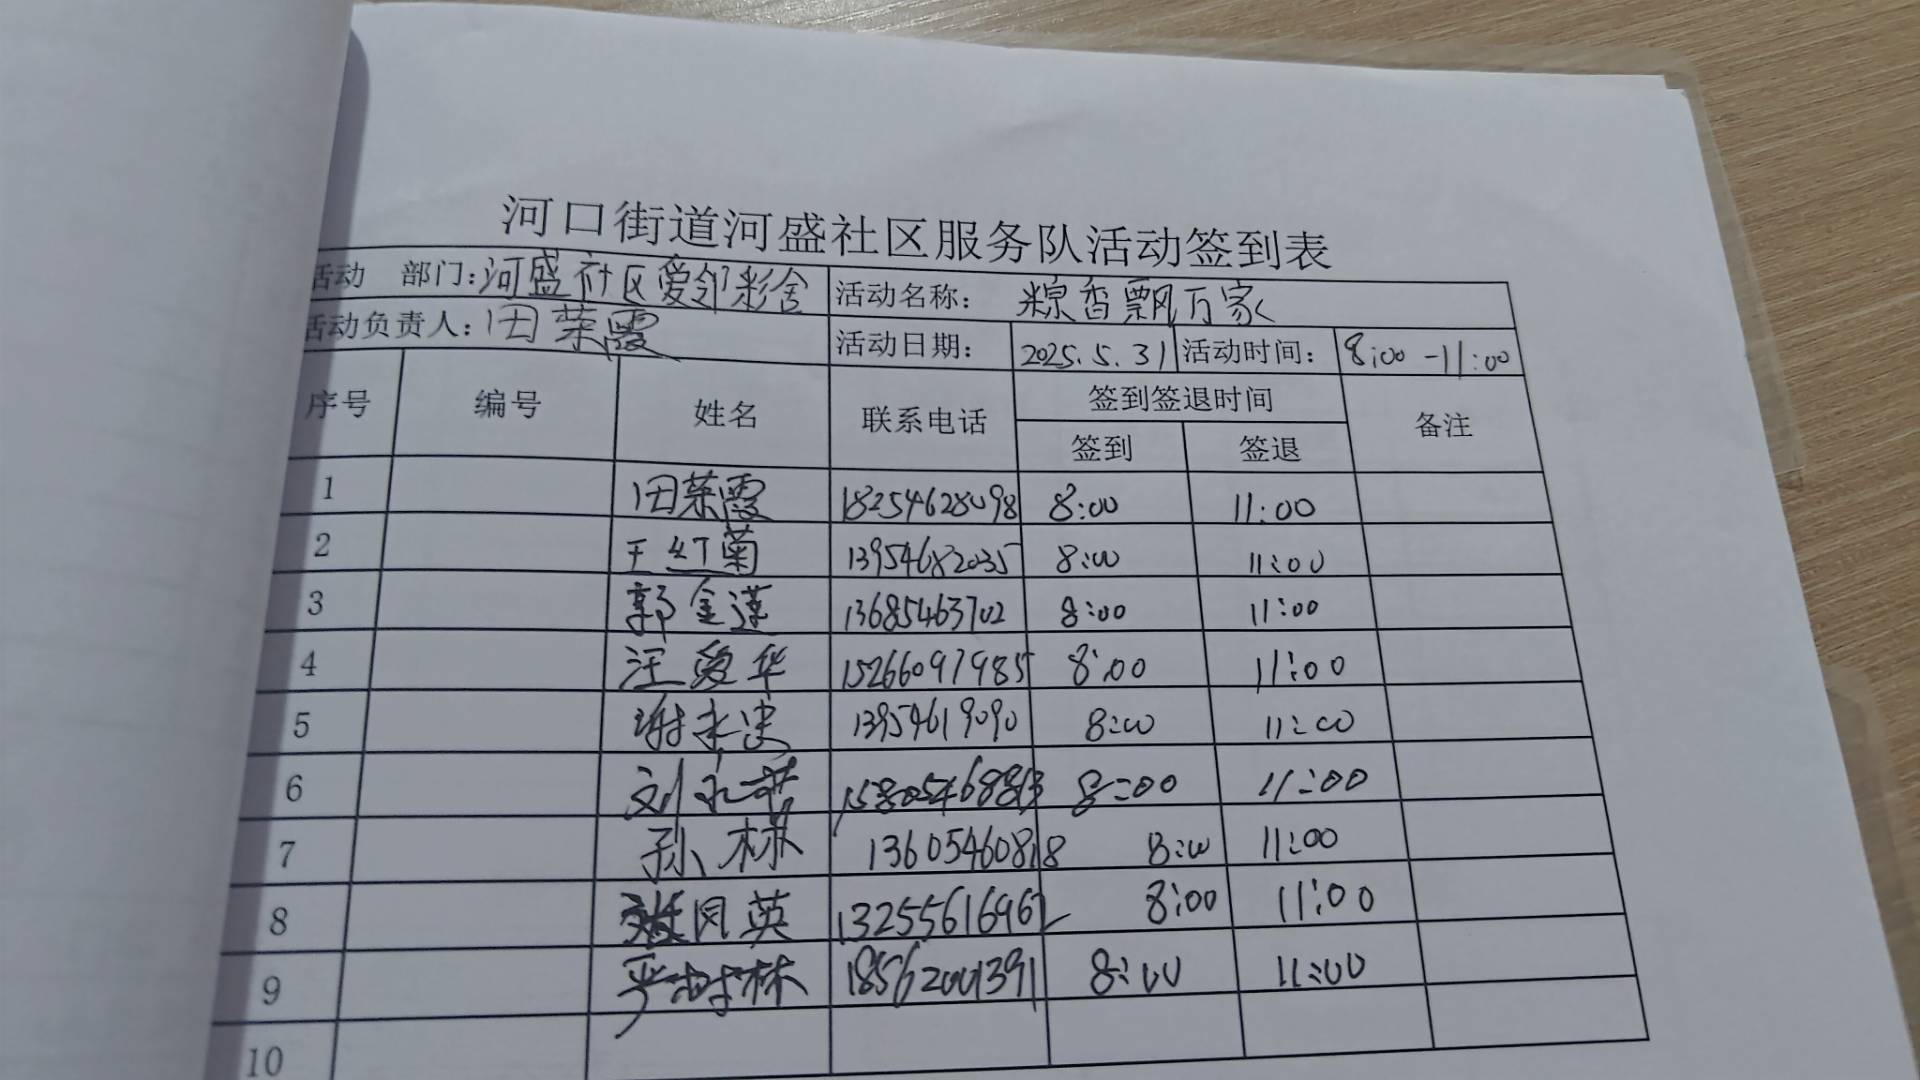 河口街道河盛社区服务队活动签到表
活动 部门:河盛社区爱邻彩舍 活动名称: 粽香飘万家
活动负责人:田荣霞 活动日期: 2025.5.31 活动时间: 8:00-11:00
序号 编号 姓名 联系电话 签到签退时间 备注
签到 签退
1 田荣霞 18254628098 8:00 11:00
2 王红菊 13954682035 8:00 11:00
3 郭金莲 13685463702 8:00 11:00
4 汪爱华 15266097985 8:00 11:00
5 13954619090 8:00 11:00
6 刘永 8:00 11:00
7 孙林 13605460818 8:00 11:00
8 张风英 13255616962 8:00 11:00
9 严树林 18562001391 8:00 11:00
10